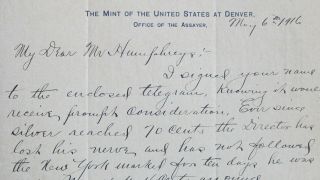 THE MINT OF THE UNITED STATES AT DENVER.
OFFICE OF THE ASSAYER.
May 6th 1916
My Dear Mr Humphreys:-
I signed your name
to the enclosed telegram, knowing it would
receive prompt consideration. Ever since
silver reached 70 cents the Director has
lost his nerve and has not followed
the New York market for ten days he was